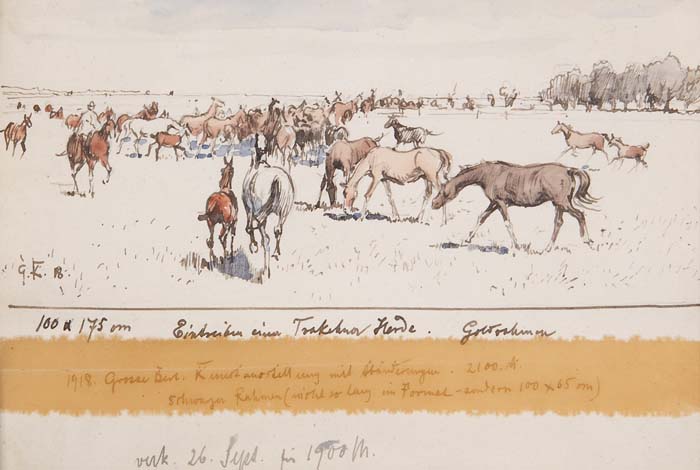 G.K. 18
100 x 175 cm Eintreiben einer Trakehner Herde.
1918. Grosse Berl. Kunstausstellung mit Abänderungen. 2100. M
schwarzer Rahmen (nicht so lang im Format - sondern 100 x 65 cm)
verk. 26. Sept. für 1900 M.